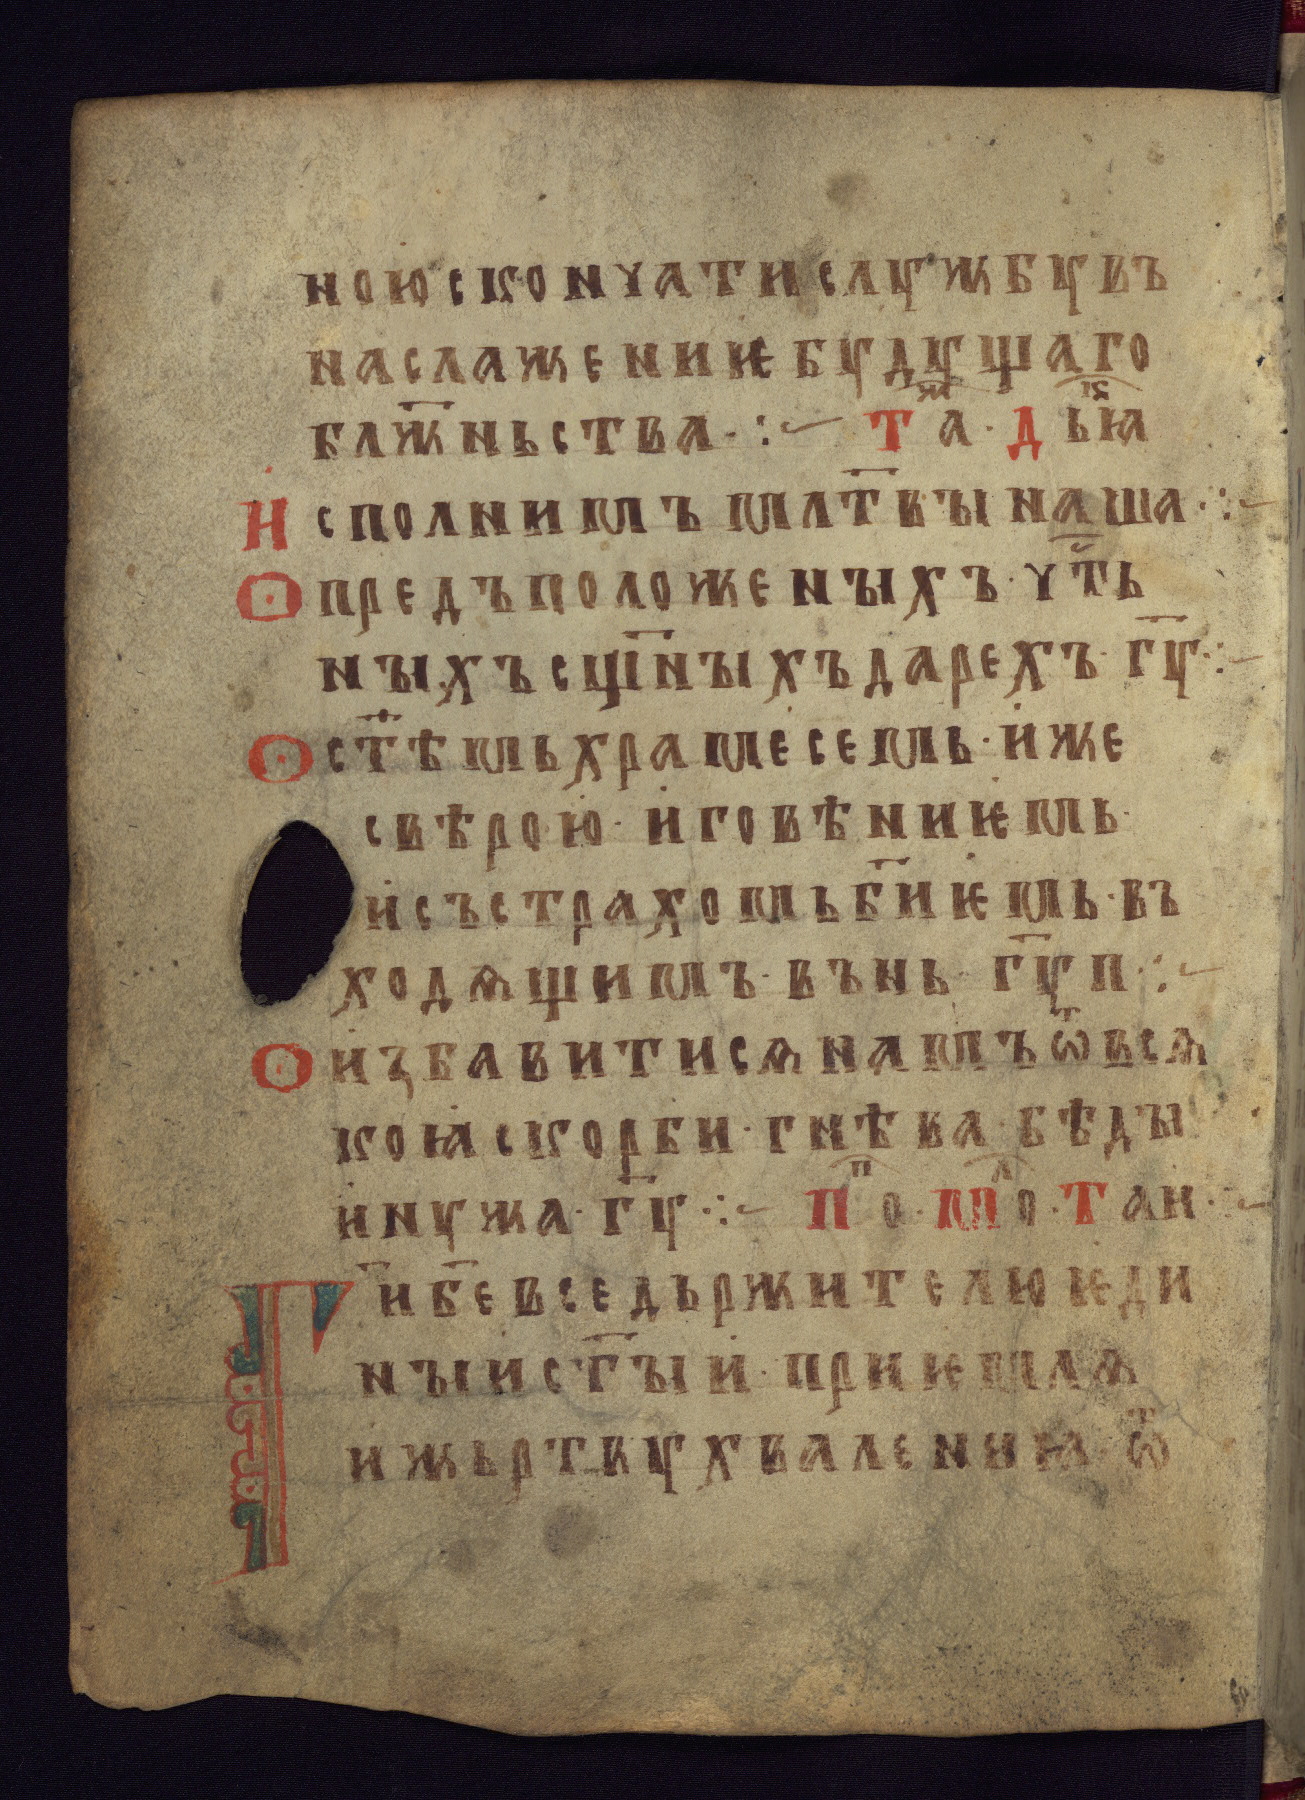 ною сконꙋати слꙋжбꙋ въ
наслажениѥ бꙋдꙋщаго
блж҃ньства · :~ Таⷤ · Дьꙗⷦ
Исполнимъ млт҃вы наша · :~
О предъположеныхъ · чⷭ҇ть
ныхъ сщ҃ныхъ дарехъ · гꙋ҃ · :~
О ст҃ѣмь храме семь · иже
с вѣрою · и говѣниѥмь ·
и съ страхомь бж҃иѥмь · въ
ходѧщимъ · в҃ънь · гꙋ҃ п · :~
О избавитисѧ намъ ѿ всѧ
коꙗ скорби · гнѣва · бѣды
и нꙋжа · гꙋ҃ · :~ Поⷫ · Моⷧ · Таи · :~
Ги҃ бе҃ вседьржителю ѥди
ныи ст҃ыи · приѥмлѧ
и жьртвꙋ хвалениꙗ · ѿ